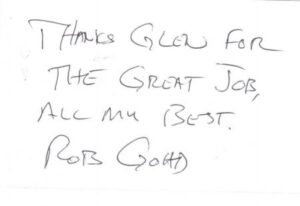 THANKS GLEN FOR
THE GREAT JOB,
ALL MY BEST.
ROB